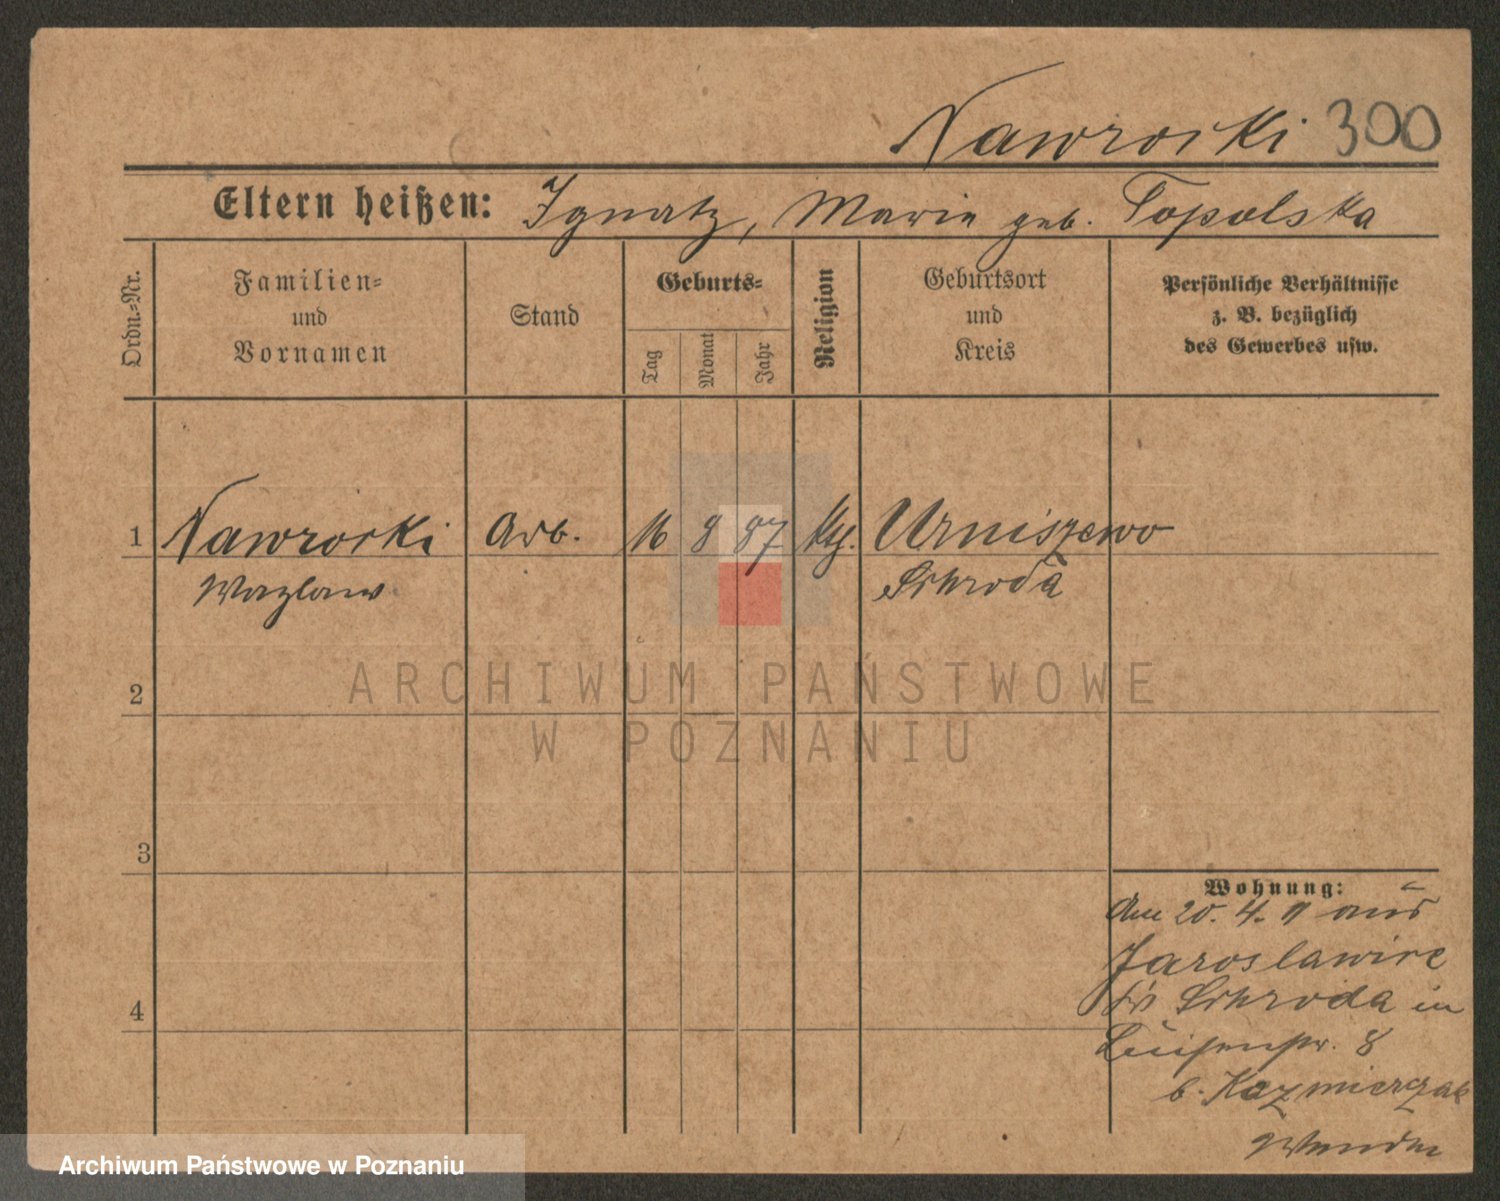 Nawrocki 300
Eltern heißen: Ignatz, Marie geb. Topolska
Ordn.=Nr.
Familien=
und
Vornamen
Stand
Geburts=
Tag
Monat
Jahr
Religion
Geburtsort
und
Kreis
Persönliche Verhältnisse
z. B. bezüglich
des Gewerbes usw.
1 Nawrocki Arb. 16 8 87 Urniszewo
Wazlaw Schroda
2
3
4
Wohnung:
Am 20. 4. 11 aus
Jaroslawice
Schroda in
Luisenstr. 8
b. Kazmierczak
ARCHIWUM PAŃSTWOWE
W POZNANIU
Archiwum Państwowe w Poznaniu